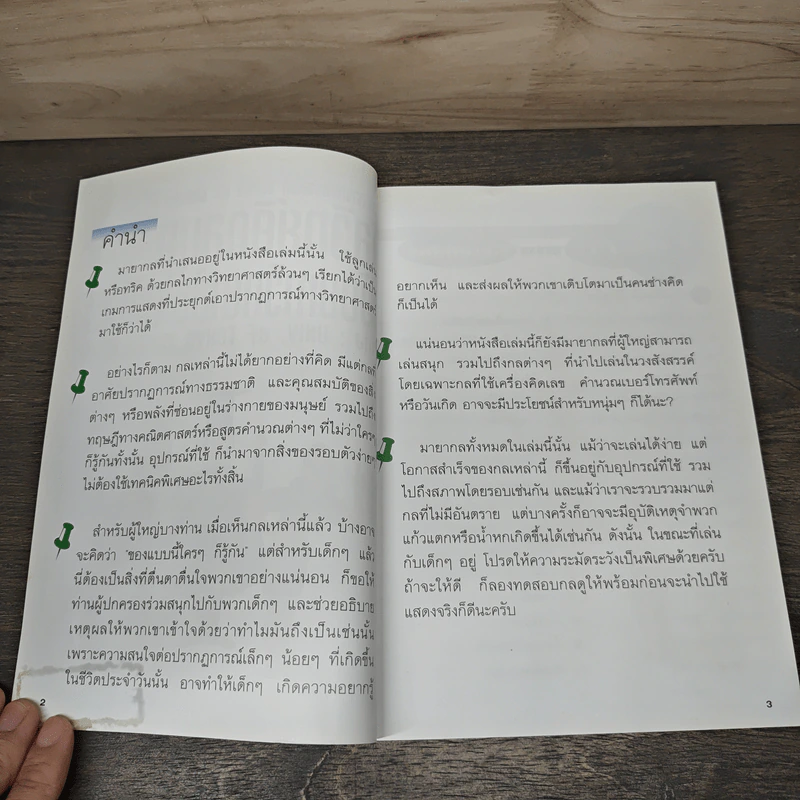 คำนำ
มายากลที่นำเสนออยู่ในหนังสือเล่มนี้นั้น ใช้ลูกเล่น
หรือทริค ด้วยกลไกทางวิทยาศาสตร์ล้วนๆ เรียกได้ว่าเป็น
เกมการแสดงที่ประยุกต์เอาปรากฏการณ์ทางวิทยาศาสตร์
มาใช้ก็ว่าได้
อย่างไรก็ตาม กลเหล่านี้ไม่ได้ยากอย่างที่คิด มีแต่กลที่
อาศัยปรากฏการณ์ทางธรรมชาติ และคุณสมบัติของสิ่ง
ต่างๆ หรือพลังที่ซ่อนอยู่ในร่างกายของมนุษย์ รวมไปถึง
ทฤษฎีทางคณิตศาสตร์หรือสูตรคำนวณต่างๆ ที่ไม่ว่าใครๆ
ก็รู้กันทั้งนั้น อุปกรณ์ที่ใช้ ก็นำมาจากสิ่งของรอบตัวง่ายๆ
ไม่ต้องใช้เทคนิคพิเศษอะไรทั้งสิ้น
สำหรับผู้ใหญ่บางท่าน เมื่อเห็นกลเหล่านี้แล้ว บ้างอาจ
จะคิดว่า "ของแบบนี้ใครๆ ก็รู้กัน" แต่สำหรับเด็กๆ แล้ว
นี่ต้องเป็นสิ่งที่ตื่นตาตื่นใจพวกเขาอย่างแน่นอน ก็ขอให้
ท่านผู้ปกครองร่วมสนุกไปกับพวกเด็กๆ และช่วยอธิบาย
เหตุผลให้พวกเขาเข้าใจด้วยว่าทำไมมันถึงเป็นเช่นนั้น
เพราะความสนใจต่อปรากฏการณ์เล็กๆ น้อยๆ ที่เกิดขึ้น
ในชีวิตประจำวันนั้น อาจทำให้เด็กๆ เกิดความอยากรู้
2
อยากเห็น และส่งผลให้พวกเขาเติบโตมาเป็นคนช่างคิด
ก็เป็นได้
แน่นอนว่าหนังสือเล่มนี้ก็ยังมีมายากลที่ผู้ใหญ่สามารถ
เล่นสนุก รวมไปถึงกลต่างๆ ที่นำไปเล่นในวงสังสรรค์
โดยเฉพาะกลที่ใช้เครื่องคิดเลข คำนวณเบอร์โทรศัพท์
หรือวันเกิด อาจจะมีประโยชน์สำหรับหนุ่มๆ ก็ได้นะ?
มายากลทั้งหมดในเล่มนี้นั้น แม้ว่าจะเล่นได้ง่าย แต่
โอกาสสำเร็จของกลเหล่านี้ ก็ขึ้นอยู่กับอุปกรณ์ที่ใช้ รวม
ไปถึงสภาพโดยรอบเช่นกัน และแม้ว่าเราจะรวบรวมมาแต่
กลที่ไม่มีอันตราย แต่บางครั้งก็อาจจะมีอุบัติเหตุจำพวก
แก้วแตกหรือน้ำหกเกิดขึ้นได้เช่นกัน ดังนั้น ในขณะที่เล่น
กับเด็กๆ อยู่ โปรดให้ความระมัดระวังเป็นพิเศษด้วยครับ
ถ้าจะให้ดี ก็ลองทดสอบกลดูให้พร้อมก่อนจะนำไปใช้
แสดงจริงก็ดีนะครับ
3